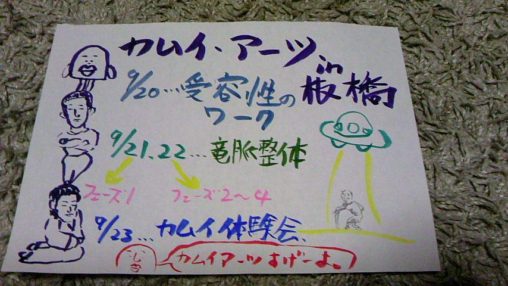 カムイ・アーツ
in 板橋
9/20…受容性の
ワーク
9/21、22…竜脈整体
フェーズ1 フェーズ2〜4
9/23…カムイ体験会、
カムイアーツすげーよ。